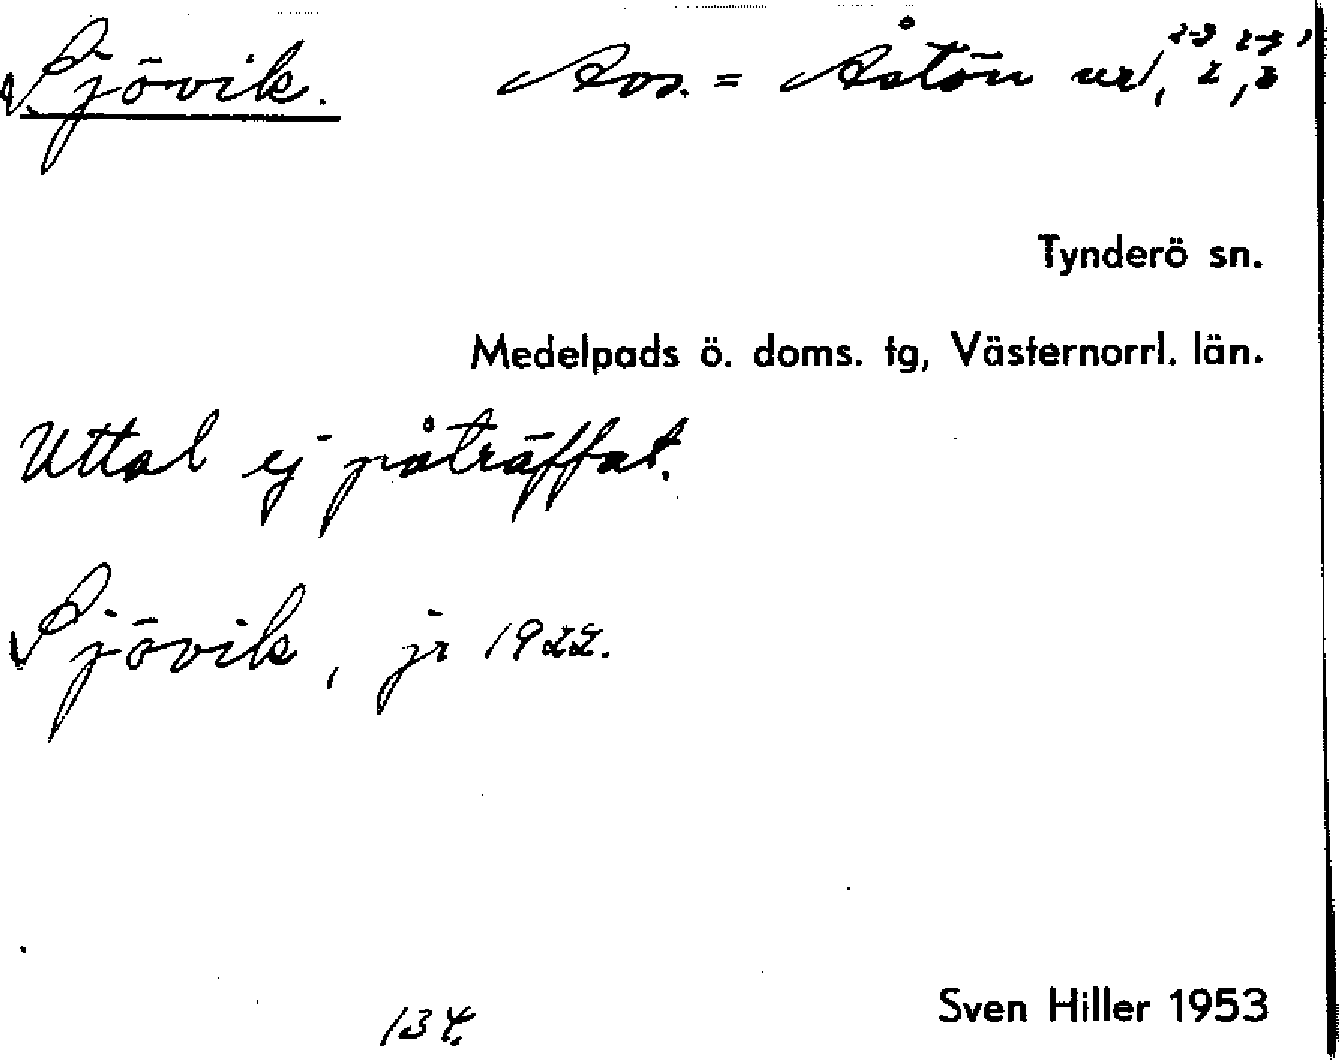 Sjövik. Avs. = Åstön nr
Tynderö sn.
Medelpads ö. doms. tg, Västernorrl. län.
Uttal ej påträffat.
Sjövik, jr 1922.
134.
Sven Hiller 1953